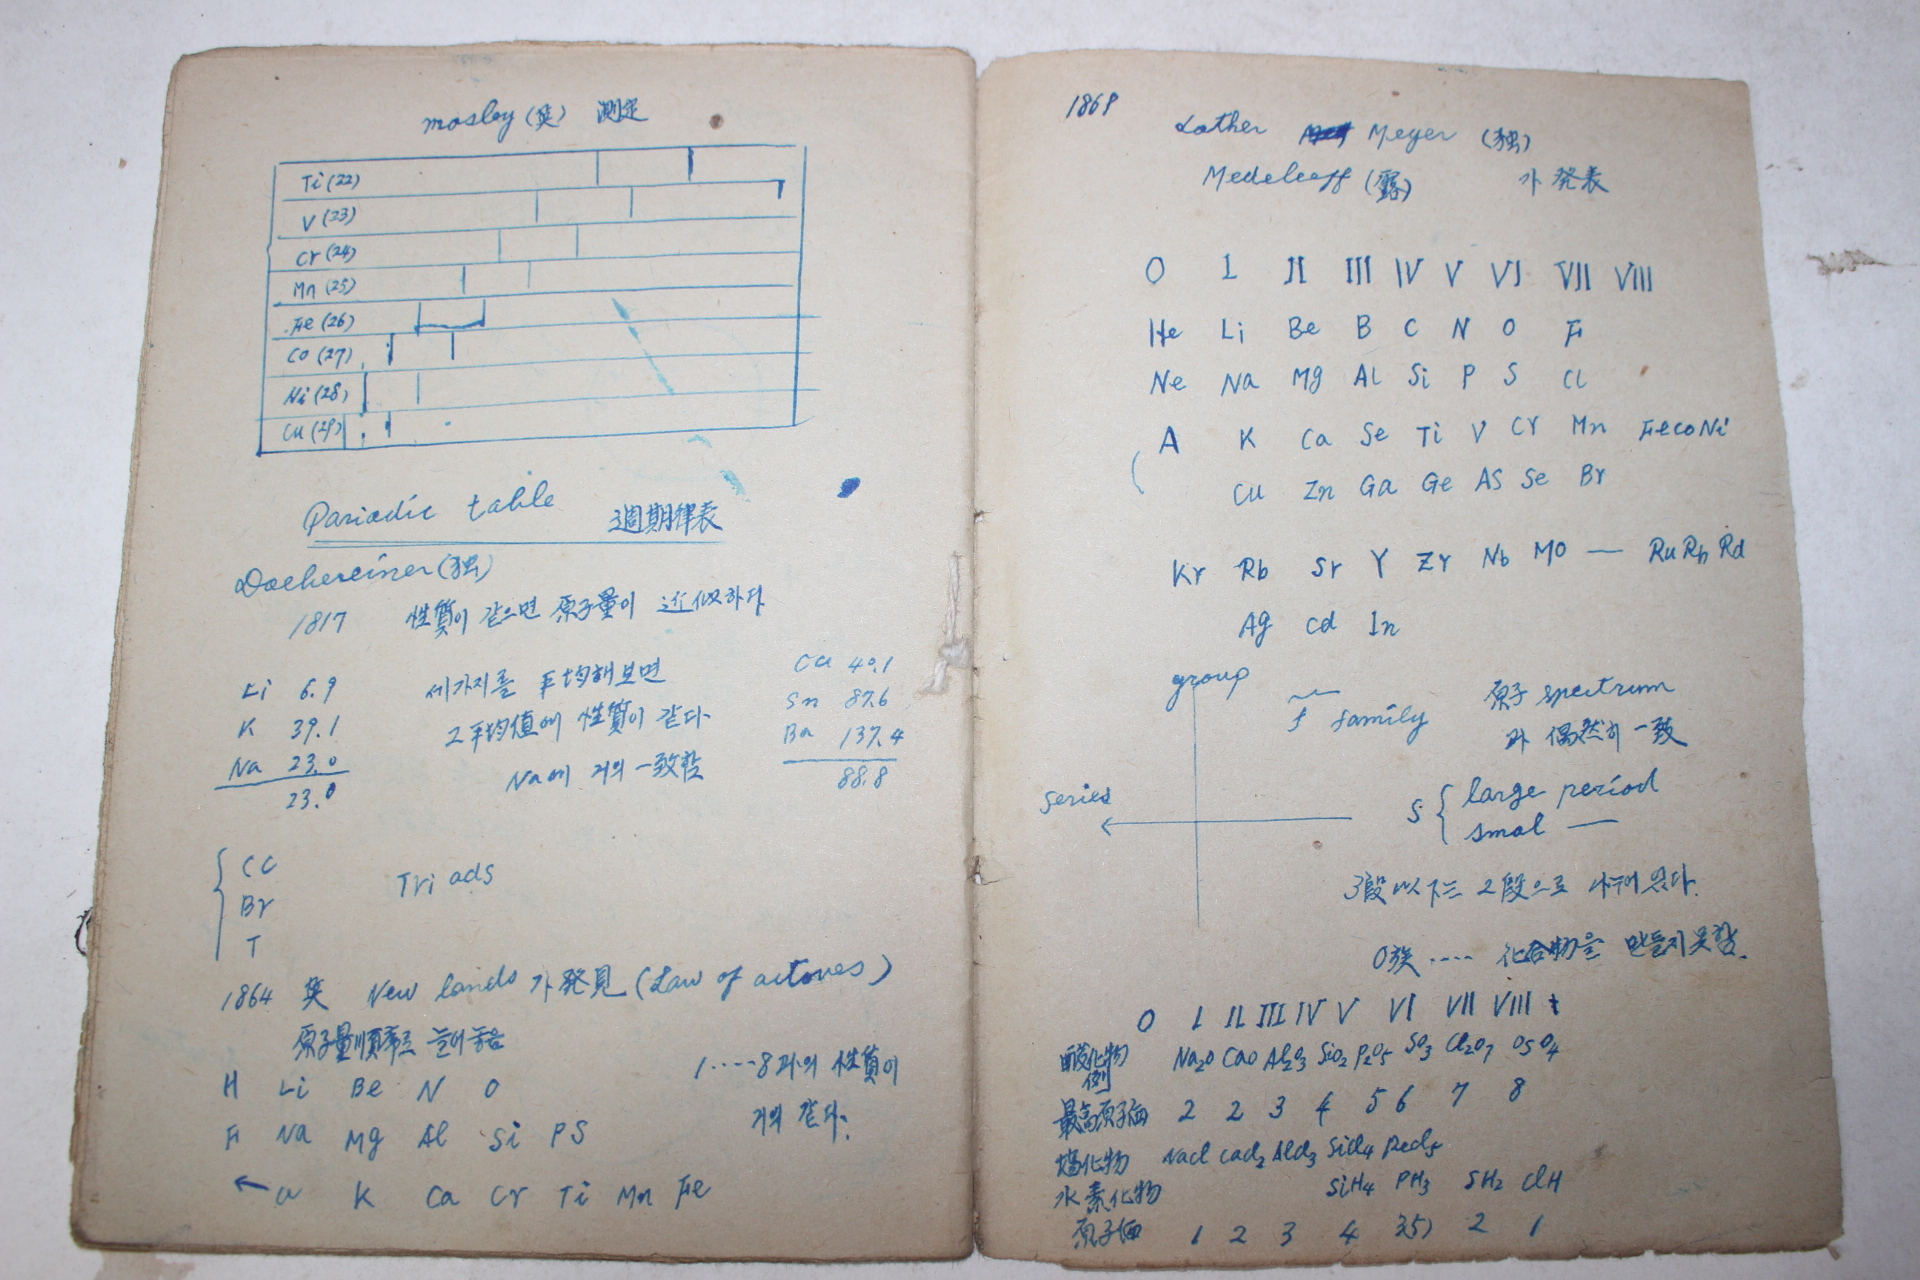 mosley (英) 測定
Ti (22)
V (23)
Cr (24)
Mn (25)
Fe (26)
CO (27)
Ni (28)
Cu (29)
Pariadic table 週期律表
Doehereiner (独)
1817 性質이 같으면 原子量이 近似하다
Li 6.9
K 39.1
Na 23.0
23.0
세가지를 平均해보면
2平均値에 性質이 같다
Na에 거의 一致함
Ca 40.1
Sn 87.6
Ba 137.4
88.8
CC
Br
T
Tri ads
1864 英 New lands가 発見 (Law of actoves)
原子量順序로 늘어놓음
H Li Be N O
F Na Mg Al Si P S
K Ca Cr Ti Mn Fe
1·····8과의 性質이
거의 같다.
1869
Lother Meyer (独)
Medeleeff (露) 가 発表
O I II III IV V VI VII VIII
He Li Be B C N O F
Ne Na Mg Al Si P S Cl
A K Ca Se Ti V Cr Mn Fe Co Ni
Cu Zn Ga Ge AS Se Br
Kr Rb Sr Y Zr Nb MO — Ru Rh Rd
Ag cd In
group
family
series
原子 spectrum
과 偶然히 一致
S { large period
smal —
3段以下는 2段으로 나누어 있다.
O族 ···· 化合物을 만들지 못함.
O I II III IV V VI VII VIII t
酸化物例 Na₂O CaO Al₂O₃ SiO₂ P₂O₅ SO₃ Cl₂O₇ OSO₄
最高原子価 2 2 3 4 5 6 7 8
塩化物 NaCl CaCl₂ AlCl₃ SiCl₄ PeCl₅
水素化物 SiH₄ PH₃ SH₂ ClH
原子価 1 2 3 4 3(5) 2 1